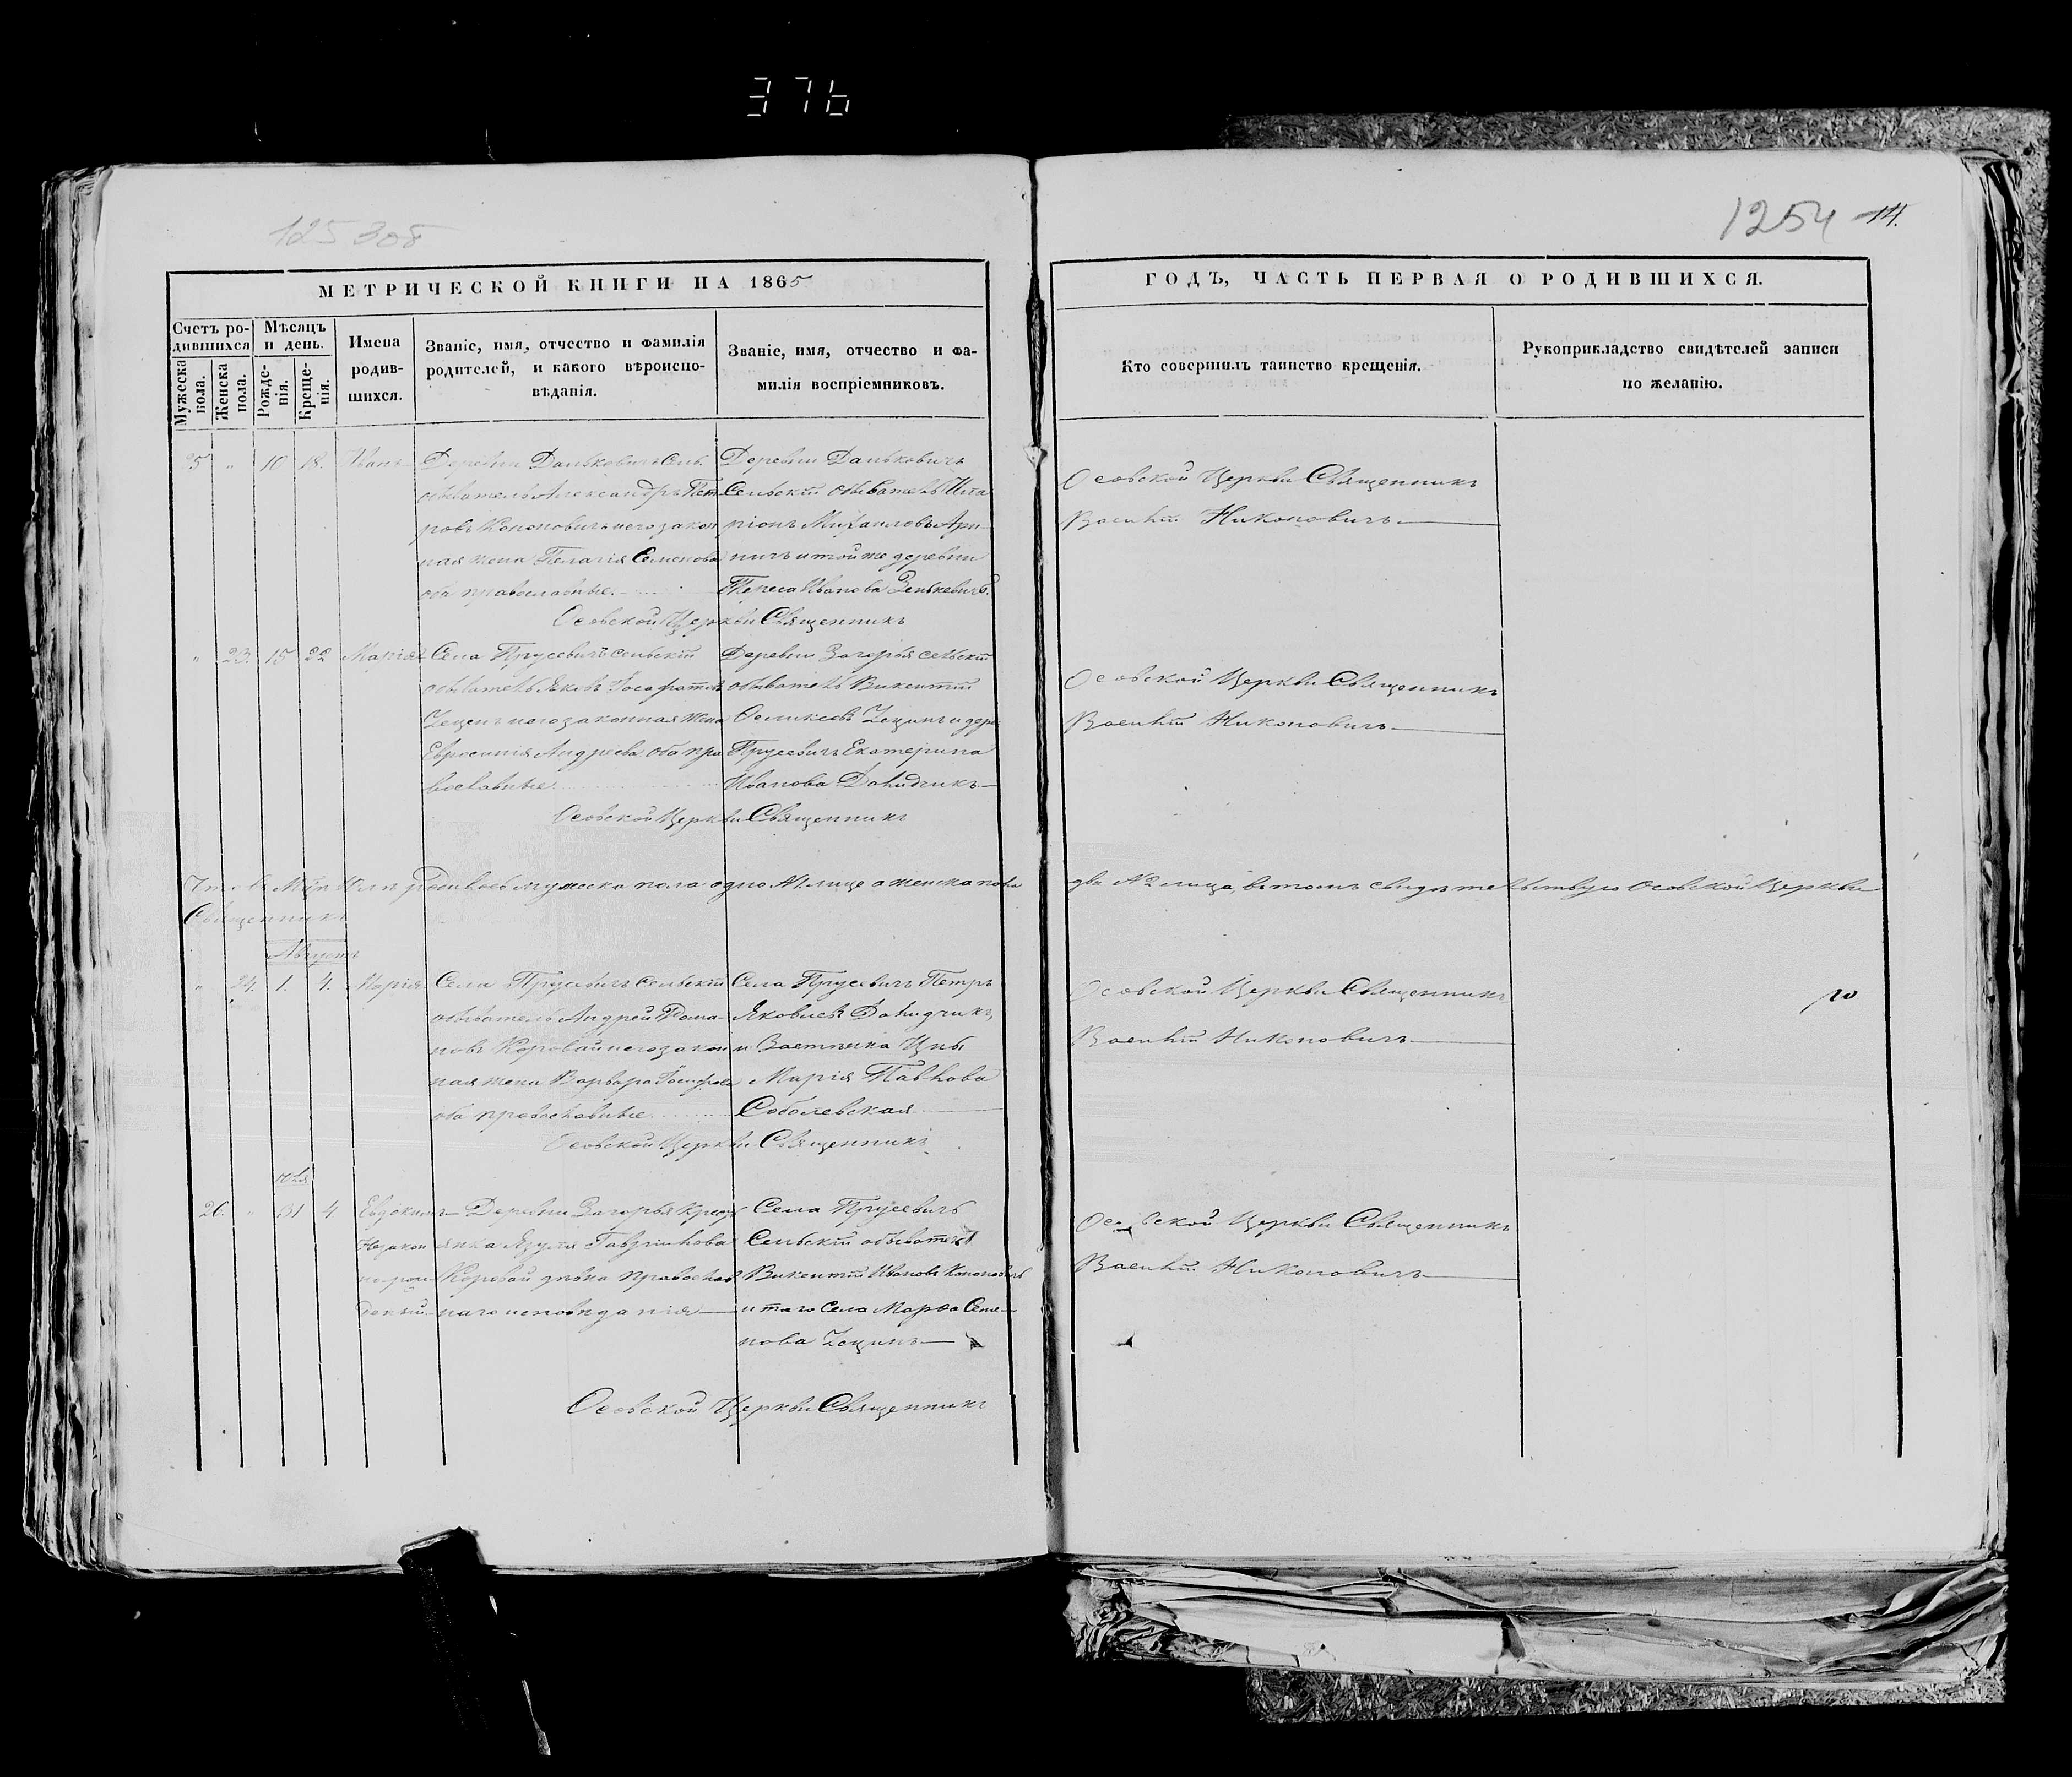 376
125 308
1254 14.
МЕТРИЧЕСКОЙ КНИГИ НА 1865
ГОДЪ, ЧАСТЬ ПЕРВАЯ О РОДИВШИХСЯ.
Счетъ ро-
дившихся
Мужеска
пола.
Женска
пола.
Мѣсяцъ
и день.
Рожде-
нія.
Креще-
нія.
Имена
родив-
шихся.
Званіе, имя, отчество и фамилія
родителей, и какого вѣроиспо-
вѣданія.
Званіе, имя, отчество и фа-
милія воспріемниковъ.
Кто совершилъ таинство крещенія.
Рукоприкладство свидѣтелей записи
по желанію.
25 " 10 18. Иванъ
Деревни Даньковичъ Сель.
обыватель Александръ Пет
ровъ Кононовичъ и его закон
ная жена Пелагія Семенова
оба православные.
Деревни Даньковичъ
Сельскій обыватель Ила
ріонъ Михаиловъ
ничъ и той же деревни
Тереса Иванова Зенькевичъ.
Осовской Церкви Священникъ
Осовской Церкви Священникъ
Василій Никоновичъ
" 23. 15 22 Марія
Села Прусевичъ сельскій
обыватель Яковъ Іосафатовъ
Цецинъ и его законная жена
Евросинія Андреева оба пра
вославные
Деревни Загорья сельскій
обыватель Викентій
Цецинъ и дерев
Прусевичъ Екатерина
Иванова Данидчикъ
Осовской Церкви Священникъ
Осовской Церкви Священникъ
Василій Никоновичъ
Что въ родилось мужеска пола одно №1 лице а женска пола
два №2 лица, въ томъ свидѣтельствую Осовской Церкви
Священникъ
Августъ
" 24. 1. 4. Марія
Села Прусевичъ Сельскій
обыватель Андрей Рома-
новъ Коровай и его закон
ная жена Варвара Іосифова
оба православные
Села Прусевичъ Петръ
Яковлевъ Данидчикъ,
и Цны
Марія Павлова
Соболевская
Осовской Церкви Священникъ
Осовской Церкви Священникъ
Василій Никоновичъ
юля
26. " 31 4 Евдокимъ
Незакон
норож
денный
Деревни Загорья Крест
янка Гаврилова
Коровай дѣвка православ
наго исповѣданія
Села Прусевичъ
Сельскій обыватель
Викентій Ивановъ Кононовичъ
и того Села Марѳа Семе-
нова Цецинъ
Осовской Церкви Священникъ
Осовской Церкви Священникъ
Василій Никоновичъ